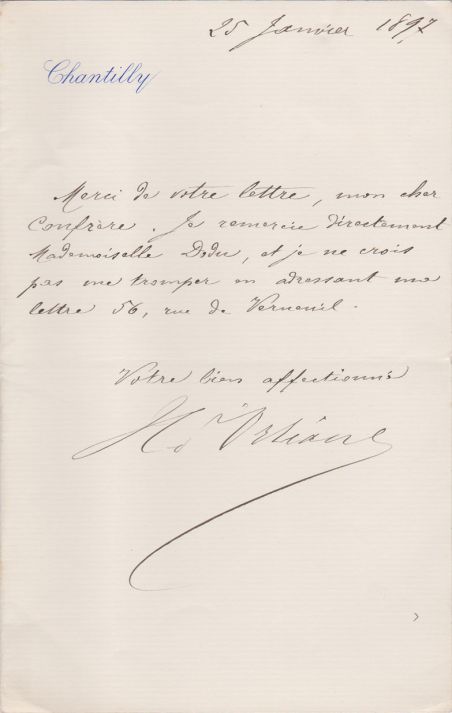 25 Janvier 1897
Chantilly
Merci de votre lettre, mon cher
Confrère. Je remercie directement
Mademoiselle Dodu, et je ne crois
pas me tromper en adressant ma
lettre 56, rue de Verneuil.
Votre bien affectionné
H. d'Orléans